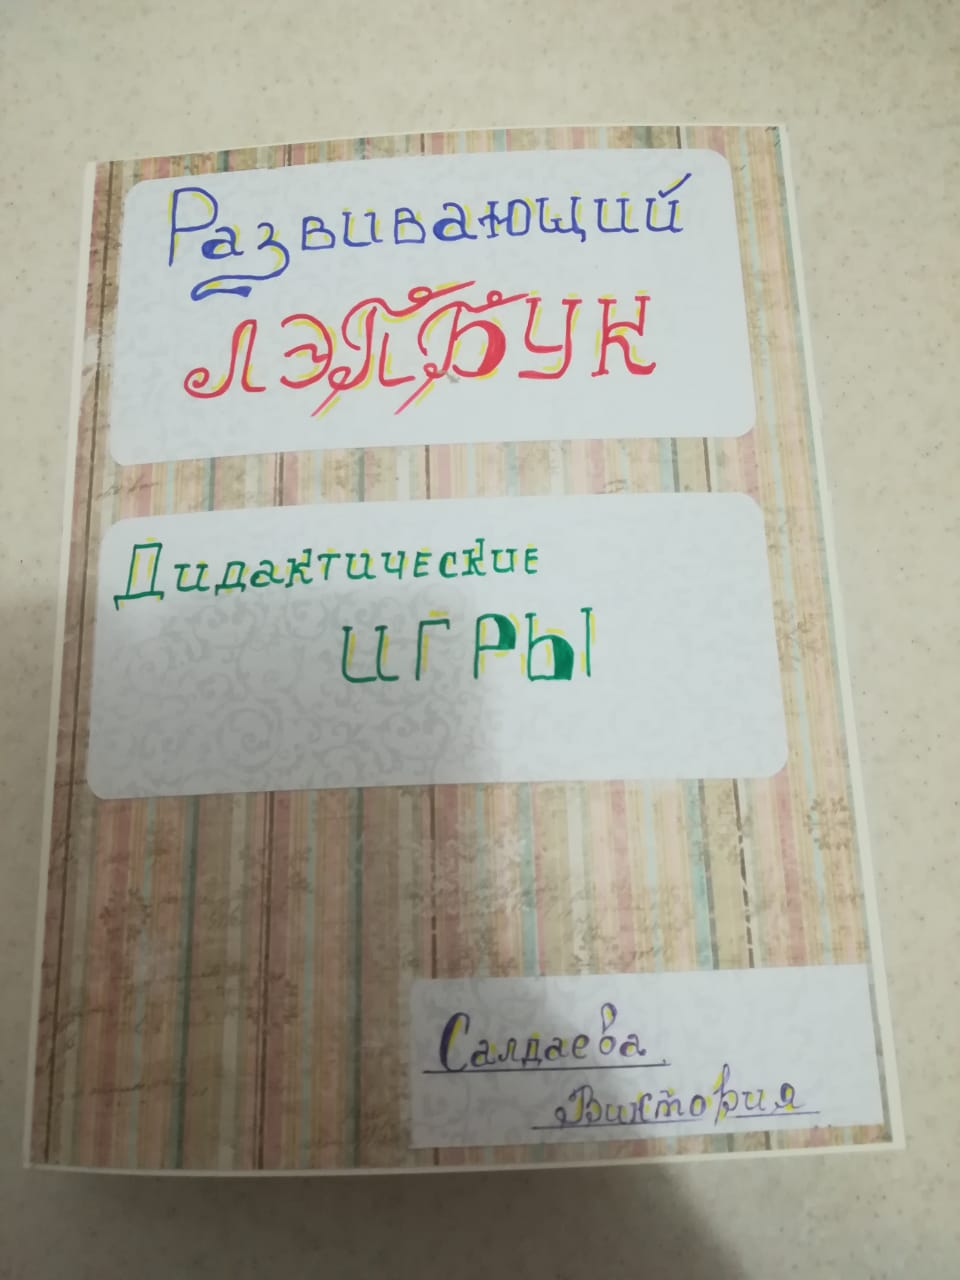 Развивающий
лэпбук
Дидактические
игры
Салдаева
Виктория